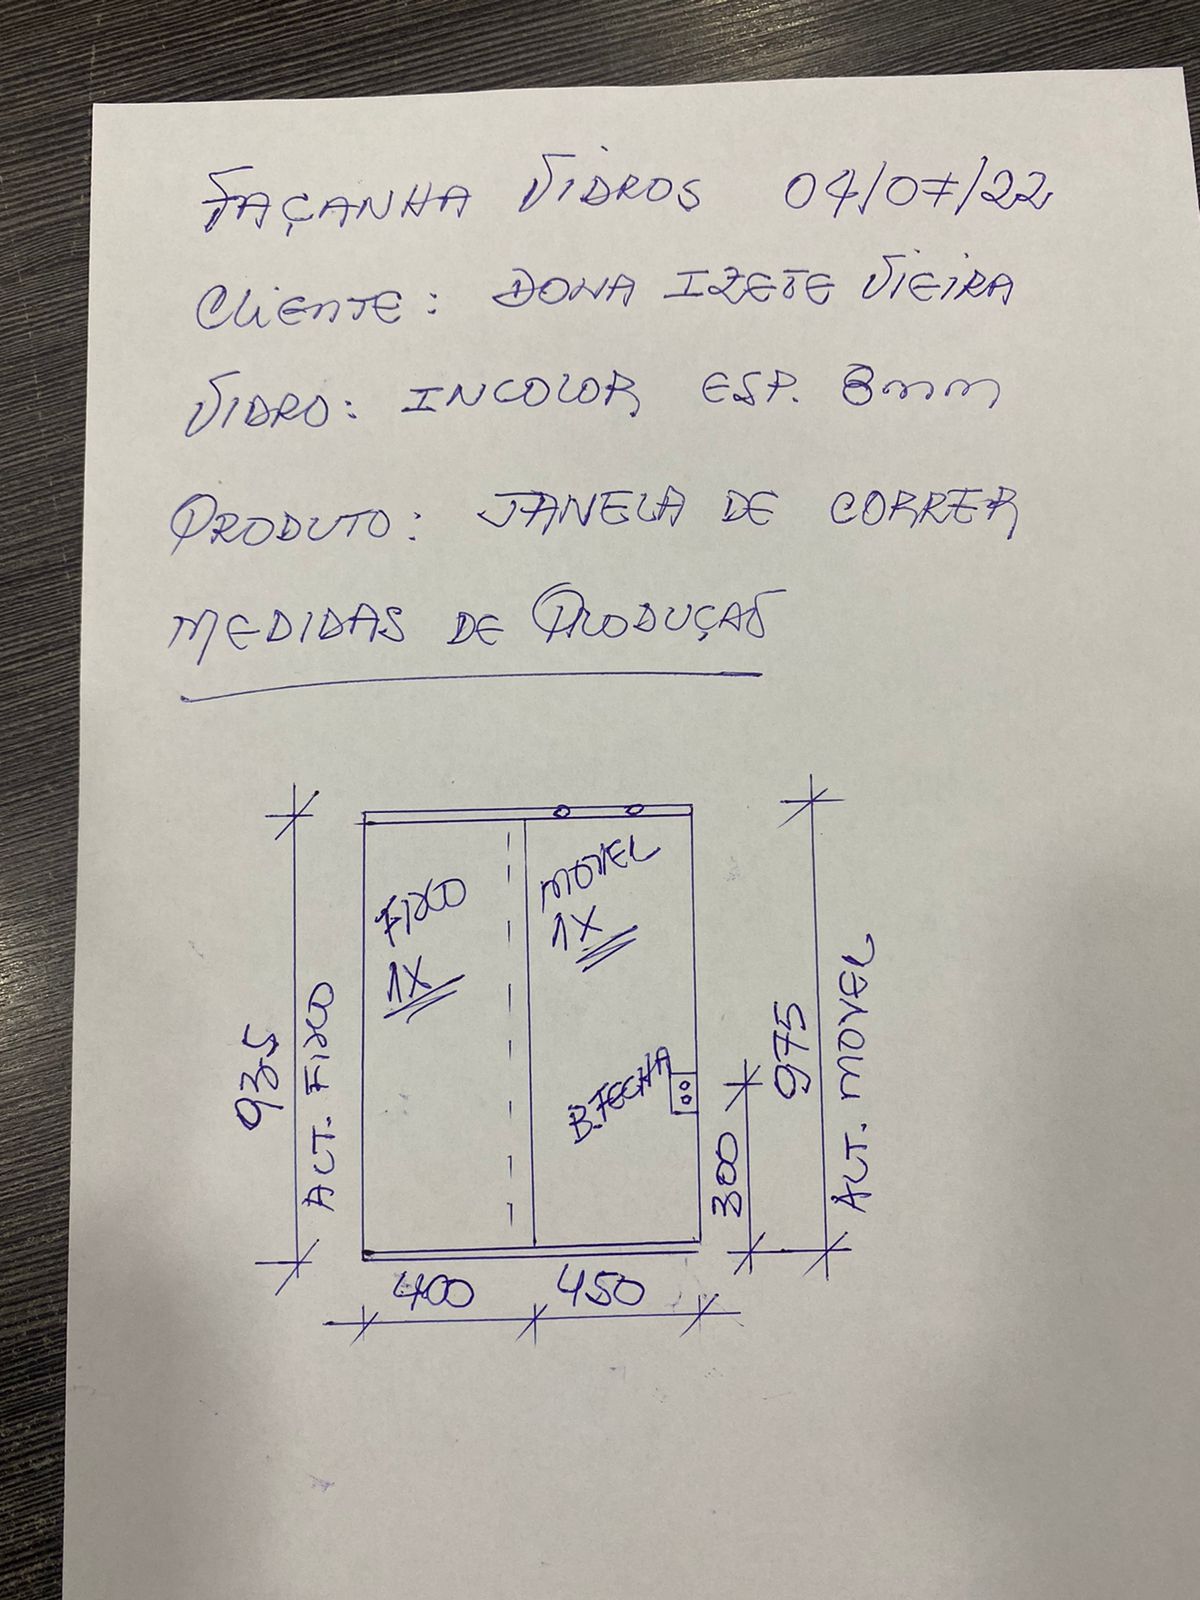 FAÇANHA VIDROS 04/07/22
CLIENTE: DONA IZETE VIEIRA
VIDRO: INCOLOR ESP. 8mm
PRODUTO: JANELA DE CORRER
MEDIDAS DE PRODUÇAÕ
FIXO
1X
MOVEL
1X
935
ALT. FIXO
B.FECHA
300
975
ALT. MOVEL
400 450